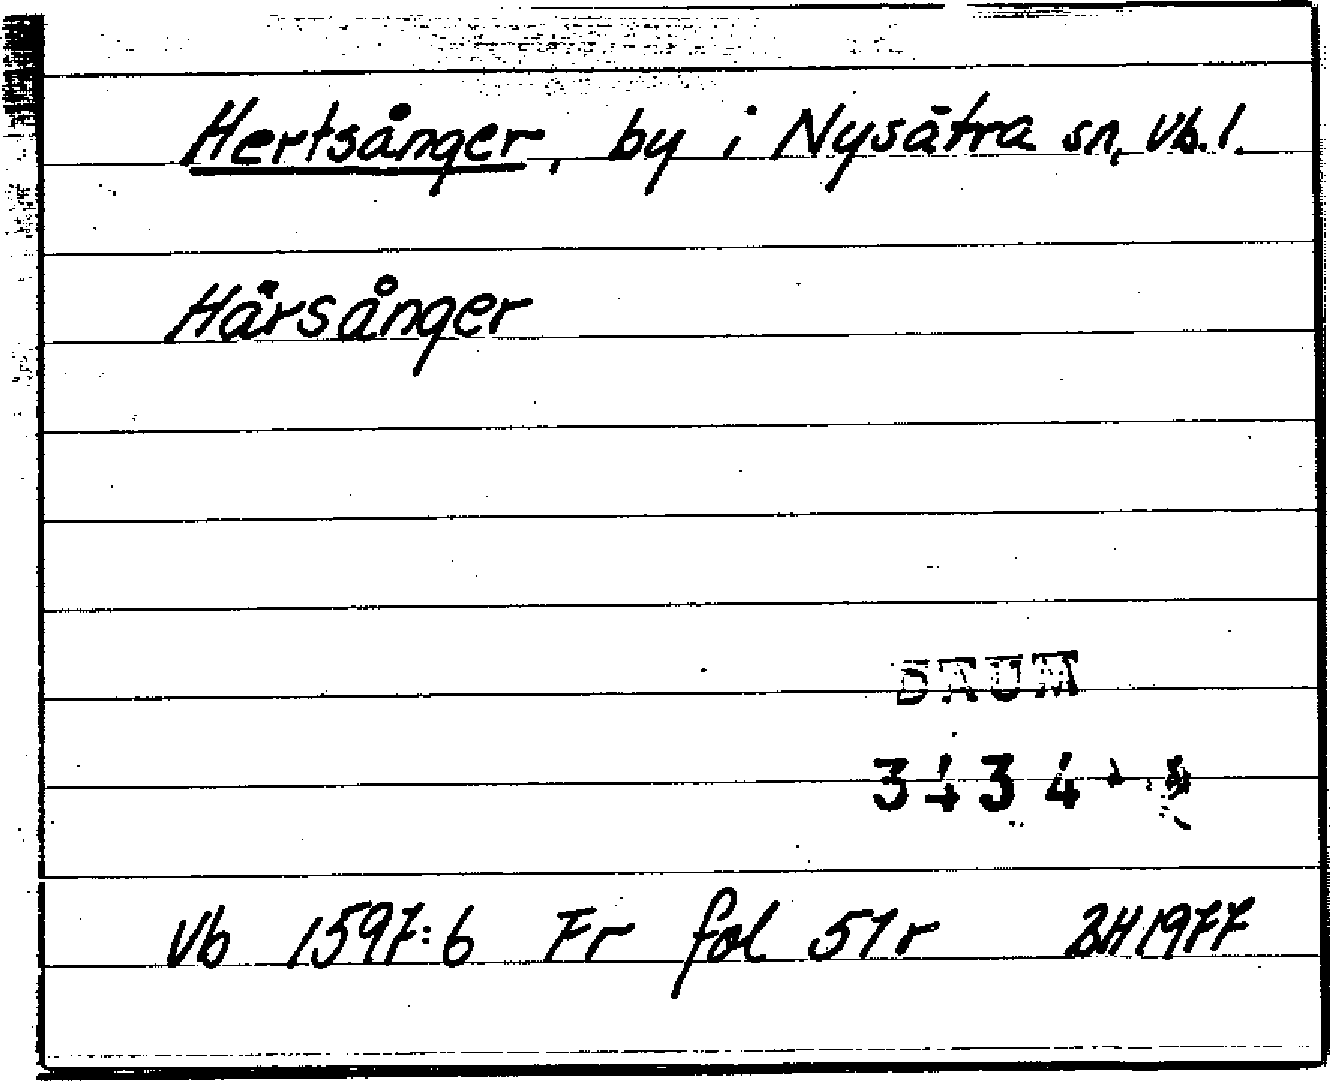 Hertsånger, by i Nysätra sn, Vb. l.
Härsånger
DAUM
3434
Vb 1597:6 Fr fol 51r BH 1977